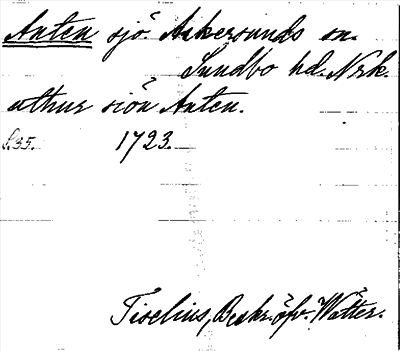 Anten sjö. Askersunds sn.
Sundbo hd. Nrk.
uthur siön Anten.
S. 35. 1723.
Tiselius, Beskr. öfv. Wätter.